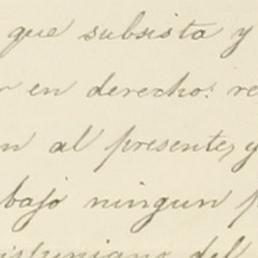 que subsista y
en derecho. re
n al presente, y
bajo ningun p
del